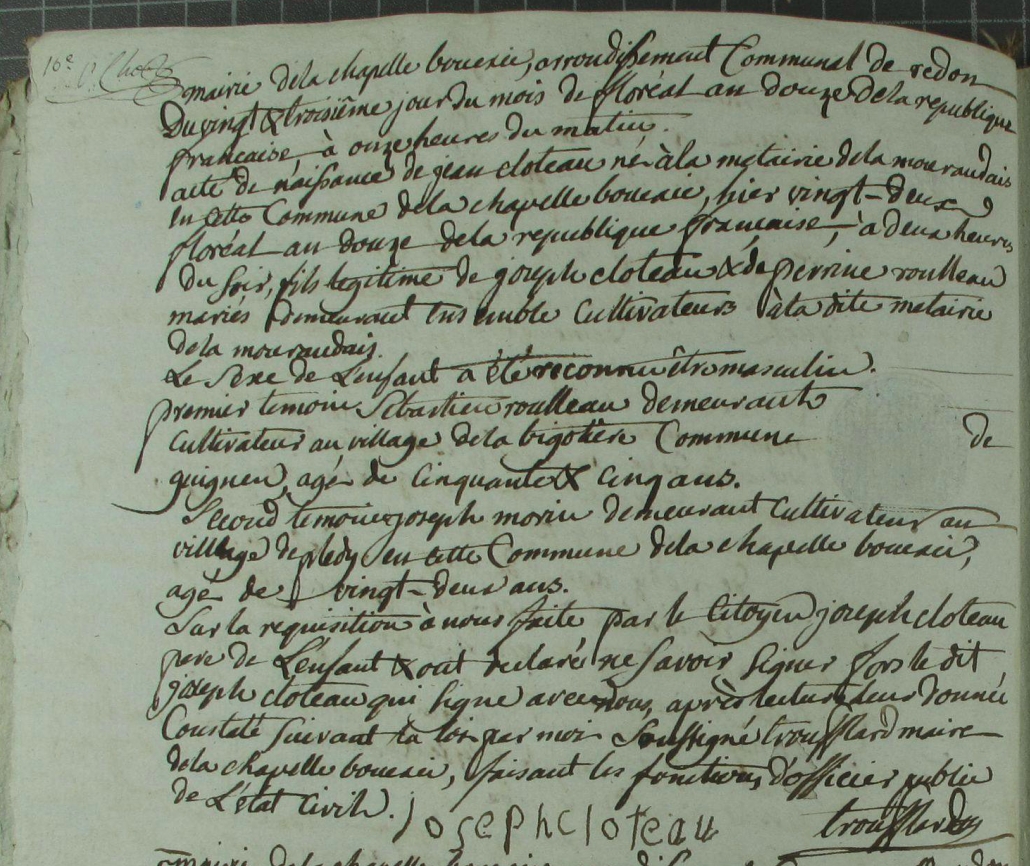 16e
mairie dela chapelle boucaic, arrondissement Communal de redon
Du vingt & troisième jour du mois de floréal an douze Dela republique
française, à onze heures du matin.
acte de naissance de jean cloteau né à la metairie dela mouraudais
En cette Commune dela chapelle boucaic, hier vingt-deux
floréal an douze dela republique française, à deux heures
du soir, fils legitime de joseph cloteau & de perrine roulleau
mariés demeurant Ensemble Cultivateurs à la dite metairie
dela mouraudais.
Le sexe de L'enfant a été reconnu être masculin.
premier temoin Sebastien roulleau demeurant
Cultivateur au village dela bigotière Commune de
guignen, agé de Cinquante & Cinq ans.
Second temoin joseph morin demeurant Cultivateur au
village de en cette Commune dela chapelle boucaic,
agé de vingt-deux ans.
Sur la requisition à nous faite par le Citoyen joseph cloteau
pere de L'enfant & ont declaré ne savoir Signer fors le dit
joseph cloteau qui Signe avec nous, après lecture donné
Constaté Suivant la loi par moi Soussigné troufflard maire
dela chapelle boucaic, faisant les fonctions d'officier public
de L'état Civil.
joseph cloteau troufflard
mairie dela chapelle